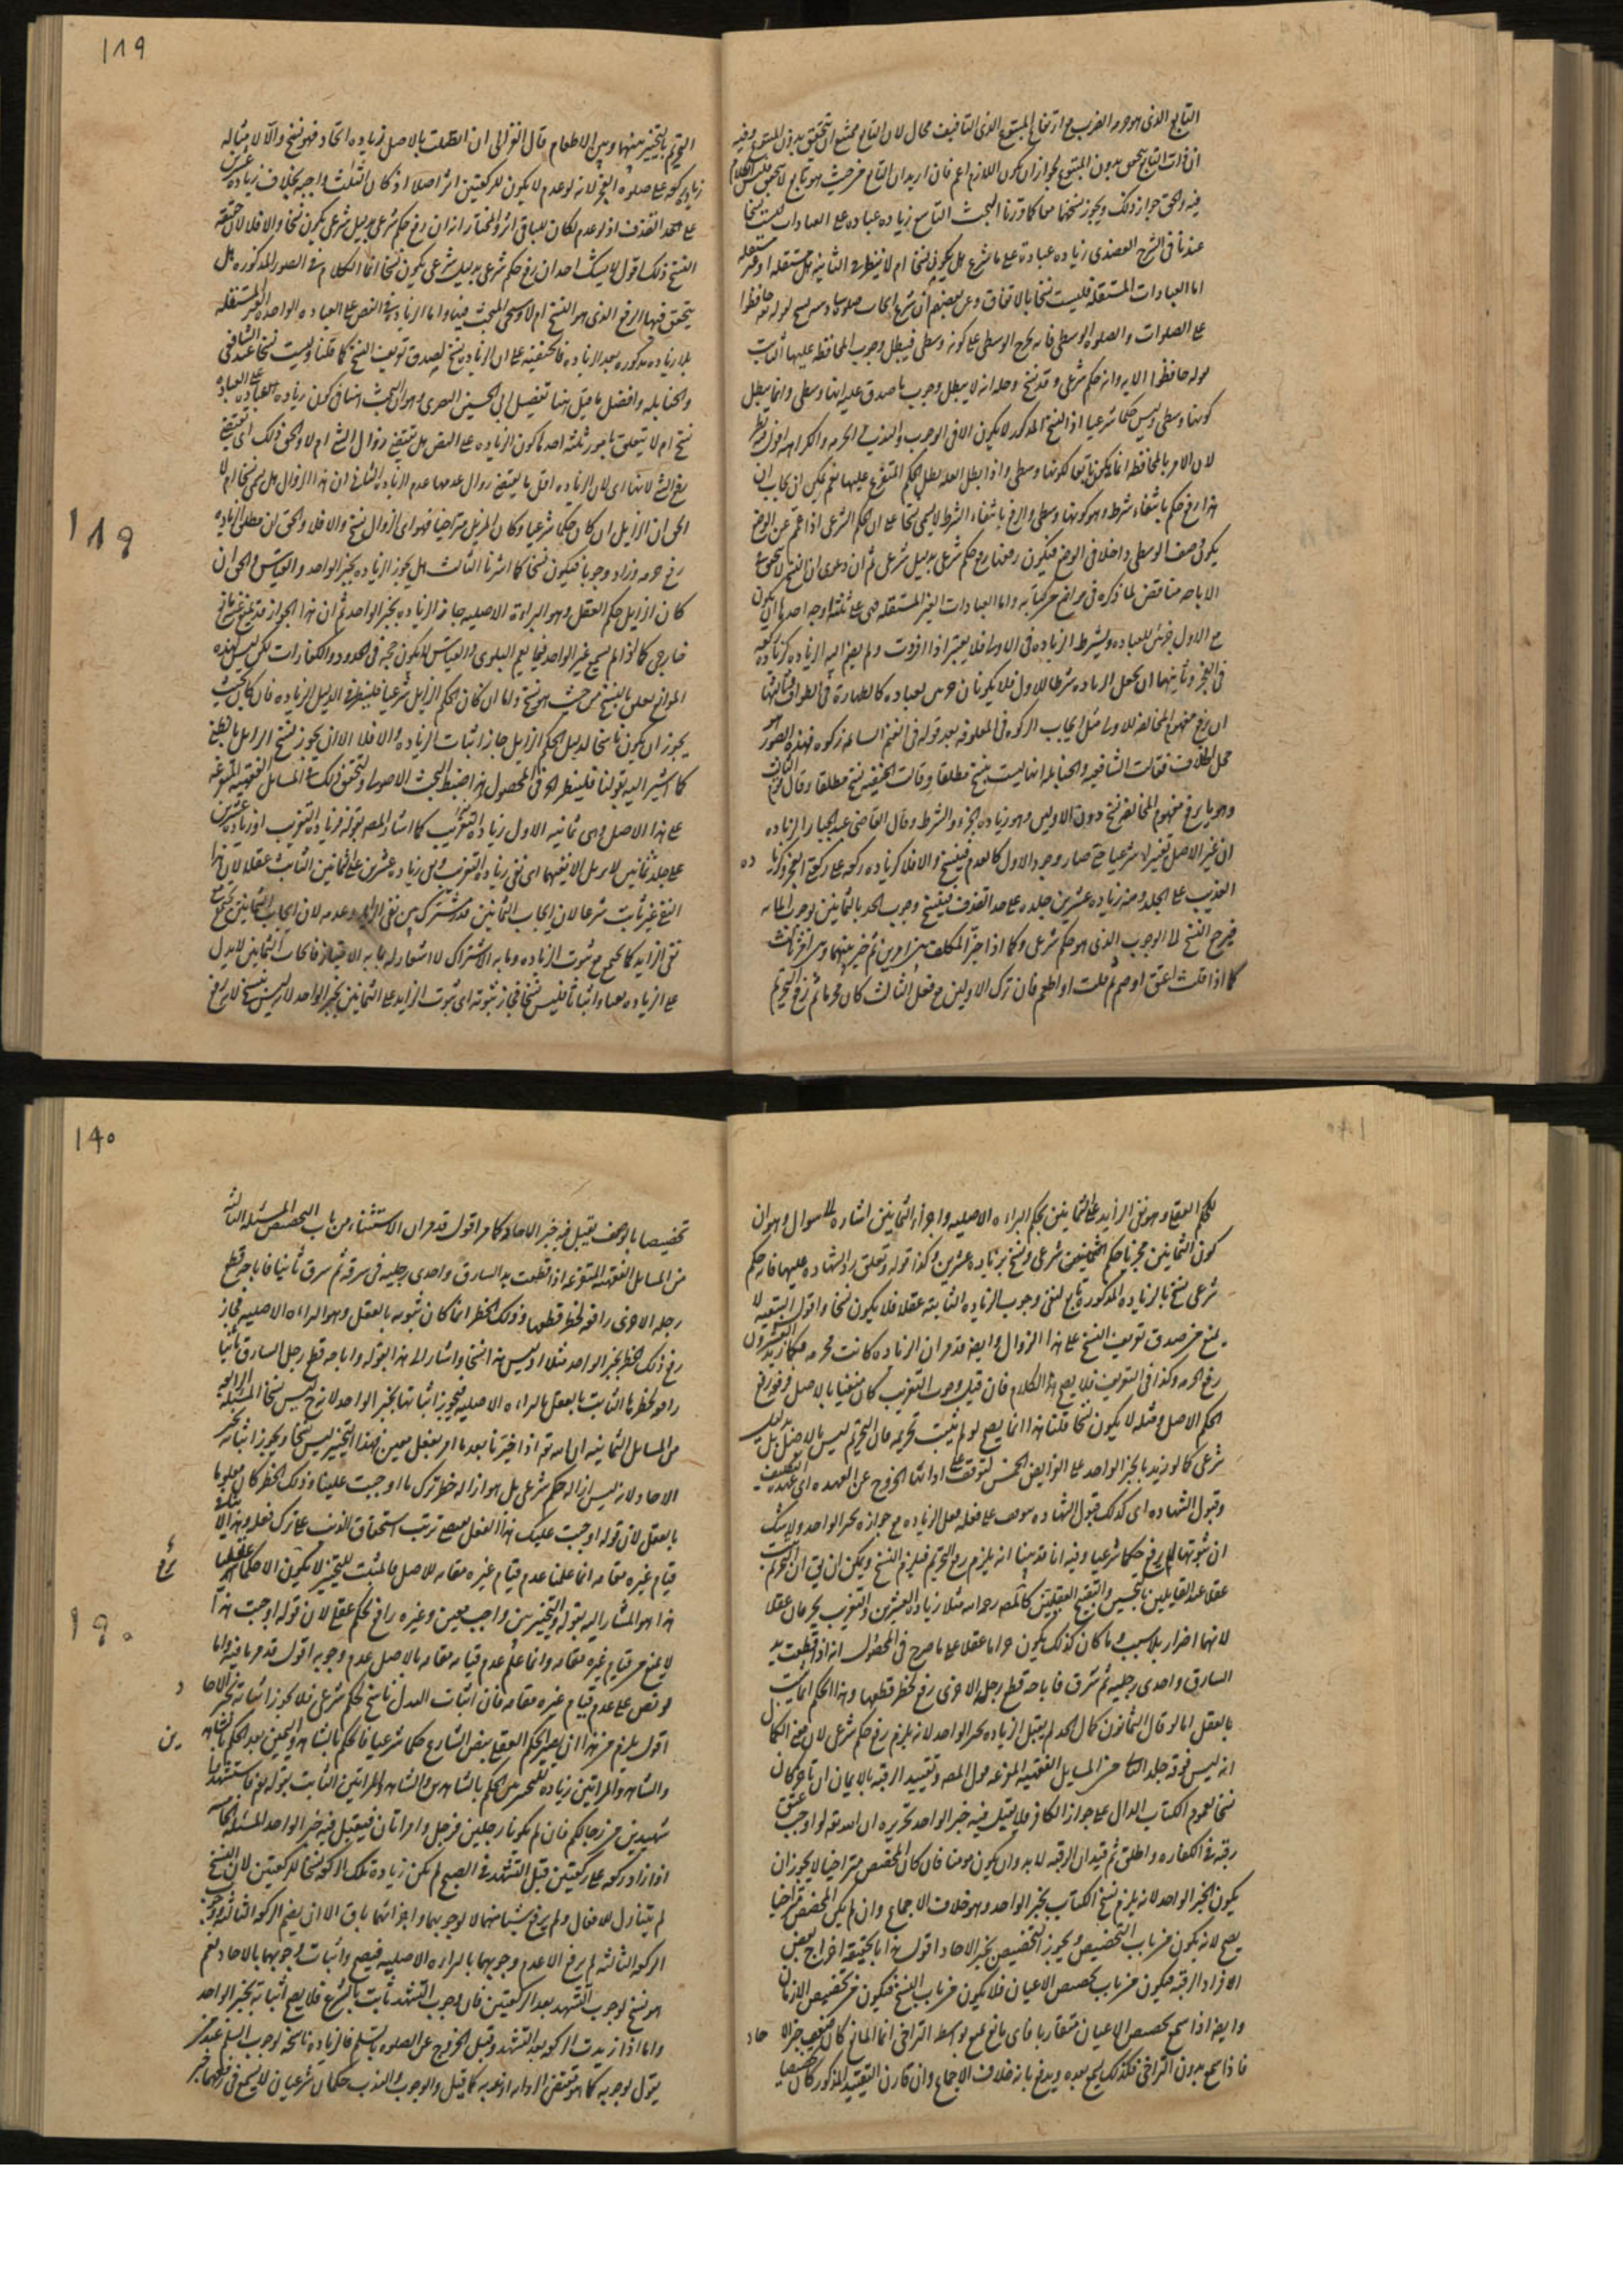 ١٨٩
التابع الذى هو حرمه الضرب مع ارتفاع المتبوع الذى التافيف محال لان التابع ممتنع ان يتحقق بدون المتبوع وفيه
ان ذات التابع يتحقق بدون المتبوع لجواز ان يكون اللازم اعم فان اريد ان التابع من حيث هو تابع لا يتحقق
فيه والحق جواز ذلك ويجوز نسخهما معا كما قررنا البحث التاسع زياده عباده على العبادات ليست نسخا
عندنا فى الشرح العضدى زياده عبادة على ما شرع هل يكون نسخا ام لا ينظر فى الثانيه هل مستقله او غير مستقله
اما العبادات المستقله فليست نسخا بالاتفاق وعن بعضهم ان شرع ايجاب صلوة سادسه نسخ لقوله تعالى حافظوا
على الصلوات والصلوة الوسطى فانه يخرج الوسطى عن كونه وسطى فيبطل وجوب المحافظه عليها الثابت
بقوله حافظوا الايه وانه حكم شرعى وقد نسخ وحله انه لا يبطل وجوب ما صدق عليه انها وسطى وانما يبطل
كونها وسطى وليس حكما شرعيا اذ النسخ المذكور لا يكون الا فى الوجوب والندب والحرمه والكراهه اقول فيه نظر
لان الامر بالمحافظه انما يكون تابعا لكونها وسطى واذا بطل العله بطل الحكم المتفرع عليها نعم يمكن ان يجاب ان
هذا رفع حكم بانتفاء شرطه وهو كونها وسطى والرفع بانتفاء الشرط لا يسمى نسخا على ان الحكم الشرعى اذا عم عن الوضع
يكون وصف الوسطى داخلا فى الوضع فيكون رفعها رفع حكم شرعى بدليل شرعى ثم ان دعوى ان النسخ لا يتحقق فى
الاباحه مناقض لما ذكره فى مواضع من كتابه واما العبادات الغير المستقله فهى على ثلثه اوجه احدها ان يكون
مع الاول جزئى للعباده ويشترط الزياده فى الاول فلا يعتبر اذا افردت ولم يضم اليه الزياده كزيادة ركعه
فى الفجر وثانيهما ان يجعل الزياده شرطا للاول فلا يكونان جزئى لعباده كالطهارة فى الطواف وثالثها
ان يرفع مفهوم المخالفه للاول مثل ايجاب الزكوه فى المعلوفه بعد قوله فى الغنم السائمه زكوه فهذه الصور هو
محل الخلاف فقالت الشافعيه والحنابله انها ليست بنسخ مطلقا وقالت الحنفيه نسخ مطلقا وقال قوم الثالث
وهو ما يرفع مفهوم المخالفه نسخ دون الاوليين وهو زياده الجزء والشرط وقال القاضى عبد الجبار الزياده
ان غير الاصل تغييرا شرعيا حتى صار وجود الاول كالعدم فينسخ والا فلا كزياده ركعه على ركعتى الفجر وكزياده
التغريب على الجلد ومنه زياده عشرين جلده على حد القذف فينسخ وجوب الحد بالثمانين
فيخرج النسخ لا الوجوب الذى هو حكم شرعى وكما اذا خير المكلف بين امرين ثم خير بينهما وبين امر ثالث
كما اذا قلت اعتق او صم ثم قلت او اطعم فان ترك الاولين مع فعل الثالث كان محرما ثم رفع التحريم
التحريم بالتخيير بينهما وبين الاطعام قال الغزالى ان اتصلت بالاصل زياده اتحاد فهو نسخ والا لا مثاله
زياده ركعه على صلوة الفجر لانه لو عدم لا يكون للركعتين اثر اصلا اذ كان الثلث واجبه بخلاف زياده عشرين
على حد القذف اذ لو عدم لكان للباقى اثر والمختار انه ان رفع حكم شرعى بدليل شرعى يكون نسخا والا فلا لان حقيقة
النسخ ذلك اقول لا يشك احد ان رفع حكم شرعى بدليل شرعى يكون نسخا انما الكلام فى الصور المذكوره هل
يتحقق فيها الرفع الذى هو النسخ ام لا واما الزياده فى النص على العباده الواحده الغير المستقله
والحنابله وافضل ما قيل هنا تفصيل ابى الحسين البصرى وهو ان البحث هنا فى كون زيادة العباده على العباده
نسخ ام لا يتعلق بامور ثلثه احدها كون الزياده على النص هل تقتضى زوال الشئ ام لا والحق ذلك اى يقتضى
رفع الشئ لانها اى لان الزياده اقل ما يقتضى زوال عدمها عدم الزياده الثانى ان هذا الزوال هل يسمى نسخا ام لا
الحق ان الزايل ان كان حكما شرعيا وكان المزيل متراخيا فهو اى الزوال نسخ والا فلا والحق ان مطلق الزياده
رفع حرمه وزاد وجوبا فيكون نسخا كما اشرنا الثالث هل يجوز الزياده بخبر الواحد والقياس والحق ان
كان الزايل حكم العقل وهو البراءة الاصليه جاز الزياده بخبر الواحد ثم ان هذا الجواز قد يمنع عن مانع
خارجى كما لو لم يسمع غير الواحد فيما يعم البلوى والقياس لا يكون حجه فى الحدود والكفارات لكن ليس لهذه
الموانع تعلق بالنسخ من حيث هو نسخ واما ان كان الحكم الزايل شرعيا فلينظر فى الدليل الزياده فان كان بحيث
يجوز ان يكون ناسخا لدليل الحكم الزايل جاز اثبات الزياده والا فلا
كما اشير اليه بقولنا فلينظر الخ فى المحصول هذا ضبط البحث الاصولى ولنحقق ذلك فى المسائل الفقهيه المتفرعه
على هذا الاصل وهى ثمانيه الاول زياده التغريب كما اشار المصه بقوله فزياده التغريب او زياده عشرين
على جلد ثمانين لا يزيل الا نفيهما اى نفى زياده التغريب وبين زياده عشرين على الثمانين الثابت عقلا لان هذا
النفى غير ثابت شرعا لان ايجاب الثمانين قدر مشترك بين نفى الزايد وعدمه لان ايجاب الثمانين يجتمع مع
نفى الزايد كما يجتمع مع ثبوت الزياده وما به الاشتراك لا اشعار له بما به الامتياز فايجاب الثمانين لا يدل
على الزياده نفيا واثباتا فليس نسخا فجاز ثبوته اى ثبوت الزايد على الثمانين بخبر الواحد لانه ليس نسخ لانه رفع
١٨٩
١٩٠
للحكم العقلى وهو نفى الزايد على الثمانين بحكم البراءه الاصليه واجزاء الثمانين اشاره الى سوال وهو ان
كون الثمانين مجزيا حكم شرعى ونسخ بزياده عشرين وكذا قوله وتعلق رد الشهاده عليهما فانه حكم
شرعى نسخ بالزياده المذكورة تابع لنفى وجوب الزياده الثابته عقلا فلا يكون نسخا واقول التبعيه لا
يمنع من صدق تعريف النسخ على هذا الزوال وايضا قد مر ان الزياده كانت محرمه
رفع الحرمه وكذا فى التغريب فلا يصح هذا الكلام فان قيل وجوب التغريب كان منفيا بالاصل فرفع رفع
الحكم الاصل ومثله لا يكون نسخا قلنا هذا انما يصح لو لم يثبت تحريمه فان التحريم ليس بالاصل بل بدليل
شرعى كما لو زيد بخبر الواحد على الفرايض الخمس لتوقف على ادائها الخروج عن العهده اى عهدة التكليف
وقبول الشهاده اى كذلك قبول الشهاده موقوف على فعله فعل الزياده مع جوازه بخبر الواحد ولا شك
ان ثبوتها لا يرفع حكما شرعيا وفيه انا قد بينا انه يلزم رفع التحريم فيلزم النسخ ويمكن ان يق ان التحريم يثبت
عقلا عند القايلين بالتحسين والتقبيح العقليين كالمصه رحمه الله مثلا زياده العشرين والتغريب يحرمان عقلا
لانهما اضرار بلا سبب وما كان كذلك يكون حراما عقلا على ما صرح فى المحصول انه اذا قطعت يد
السارق واحدى رجليه ثم سرق فاباحه قطع رجله الاخرى رفع لحظر قطعها وهذا الحكم انما يثبت
بالعقل اما لو قال الثمانون كمال الحد لم يقبل الزياده بخبر الواحد لانه يلزم رفع حكم شرعى لان معنى الكمال
انه ليس فوقه جلد الثالث من المسايل الفقهيه المفرعه قول المصه وتقييد الرقبه بالايمان ان تاخر كان
نسخا لعموم الكتاب الدال على جواز الكافر فلا يقبل فيه خبر الواحد تحريره ان الله تعه لو اوجب عتق
رقبه فى الكفاره واطلق ثم قيد ان الرقبه لا بد وان يكون مومنا فان كان المخصص متراخيا لا يجوز ان
يكون الخبر الواحد لانه يلزم نسخ الكتاب بخبر الواحد وهو خلاف الاجماع وان لم يكن المخصص متراخيا
يصح لانه يكون من باب التخصيص ويجوز التخصيص بخبر الاحاد اقول هذا بالحقيقه اخراج بعض
الافراد الرقبه فيكون من باب تخصيص الاعيان فلا يكون من باب النسخ فيكون من تخصيص الازمان
وايضا اذا سمع تخصيص الاعيان متقاربا فاى مانع يمنع بواسطه التراخى انما المانع كان ضعف خبر الاحاد
فاذا سمع بدون التراخى فكذلك يسمع بعده ويدفع بانه خلاف الاجماع وان قارن التقييد المذكور كان تخصيصا
تخصيصا بالوصف يقبل فيه خبر الاحاد كما مر اقول قد مر ان الاستثناء من باب التخصيص المسئله الثالثه
من المسايل الفقهيه المتفرعه اذا قطعت يد السارق واحدى رجليه فى سرقه ثم سرق ثانيا فاباحه قطع
رجله الاخرى رافعه لحظر قطعها وذلك الحظر انما كان ثبوته بالعقل وهو البراءه الاصليه فجاز
رفع ذلك الحظر بخبر الواحد مثلا اذ ليس هذا نسخا واشار الى هذا بقوله واباحه قطع رجل السارق ثانيا
رافع لحظرها الثابت بالعقل بالبراءه الاصليه فيجوز اثباتها بخبر الواحد لانه ح ليس نسخا المسئله الرابعه
من المسايل الثمانيه ان الله تعه اذا خيرنا بعد ما امر بفعل معين فهذا التخيير ليس نسخا ويجوز اثباته بخبر
الاحاد لانه ليس ازاله حكم شرعى بل هو ازاله حظر ترك ما اوجبت علينا وذلك الحظر كان معلوما
بالعقل لان قوله اوجبت عليك هذا الفعل يقتضى ترتب استحقاق الذنب على ترك فعله وهذا لا
قيام غيره مقامه انما علمنا عدم قيام غيره مقامه للاصل فالمثبت للتخيير لا يكون الا حكما عقليا
هذا هو المشار اليه بقوله والتخيير بين واجب معين وغيره رافع لحكم عقلى لان قوله اوجبت هذا
لا يمنع من قيام غيره مقامه وانما علم عدم قيامه مقامه بالاصل عدم وجوبه اقول قد مر ما فيه واما
لو نص على عدم قيام غيره مقامه فان اثبات البدل ناسخ لحكم شرعى فلا يجوز اثباته بخبر الاحاد
اقول يلزم من هذا ان يصير الحكم العقلى بنص الشارع حكما شرعيا فالحكم بالشاهد واليمين بعد الحكم بالشاهدين
والشاهد والمراتين زياده لتخيير بين الحكم بالشاهدين والشاهد والمراتين الثابت بقوله تعه فاستشهدوا
شهيدين من رجالكم فان لم يكونا رجلين فرجل وامراتان فيقبل فيه خبر الواحد المسئله الخامسه
اذا زاد ركعه على ركعتين قبل التشهد فى الصبح لم يكن زيادة تلك الركعه نسخا للركعتين لان النسخ
لم يتناول للافعال ولم يرفع شيئا منهما لا لوجوبهما واجزائهما باق الا ان يضم الركعه الثالثه ووجوب
الركعه الثالثه لم يرفع الا عدم وجوبهما بالبراءه الاصليه فيصح واثبات وجوبهما بالاحاد نعم
هو نسخ لوجوب التشهد بعد الركعتين فان وجوب التشهد ثابت بالشرع فلا يصح اثباته بخبر الواحد
واما اذا زيدت الركعه بعد التشهد وقبل الخروج عن الصلوه بالتسليم فالزياده ناسخه لوجوب التسليم عند من
يقول بوجوبه كما هو مقتضى الروايه او ندبه كما قيل والوجوب والندب حكمان شرعيان لا يسمع فى رفعهما خبر
١٩٠